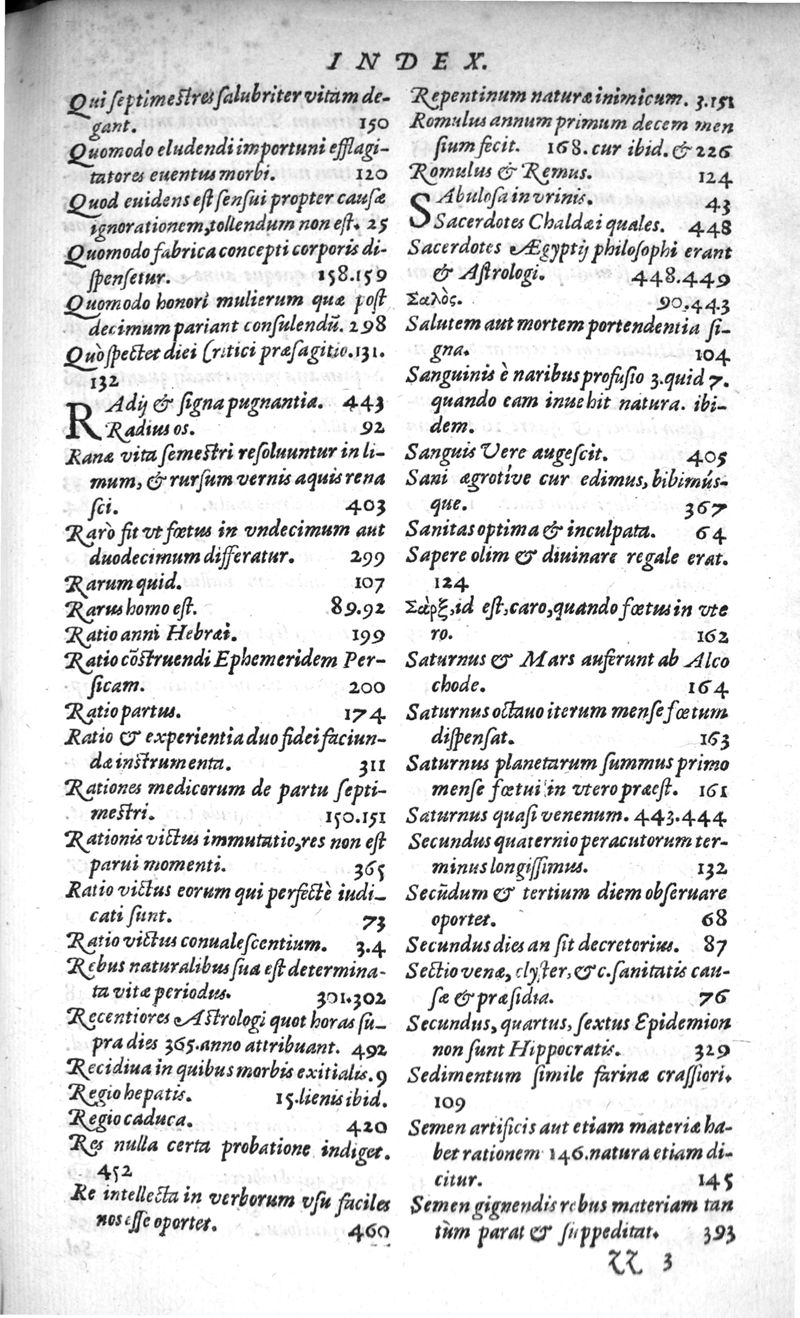 INDEX.
Qui septimestres salubriter vitam de-
gant. 150
Quomodo eludendi importuni efflagi-
tatores euentus morbi. 120
Quod euidens est sensui propter causæ
ignorationem, tollendum non est. 25
Quomodo fabrica concepti corporis di-
spensetur. 158.159
Quomodo honori mulierum quæ post
decimum pariant consulendũ. 298
Quò spectet diei Critici præsagitio. 131.
132
RAdij & signa pugnantia. 443
Radius os. 92
Ranæ vita semestri resoluuntur in li-
mum, & rursum vernis aquis rena
sci. 403
Rarò fit vt fœtus in vndecimum aut
duodecimum differatur. 299
Rarum quid. 107
Rarus homo est. 89.92
Ratio anni Hebræi. 199
Ratio cõstruendi Ephemeridem Per-
sicam. 200
Ratio partus. 174
Ratio & experientia duo fidei faciun-
dæ instrumenta. 311
Rationes medicorum de partu septi-
mestri. 150.151
Rationis victus immutatio, res non est
parui momenti. 365
Ratio victus eorum qui perfectè iudi-
cati sunt. 73
Ratio victus conualescentium. 3.4
Rebus naturalibus sua est determina-
ta vitæ periodus. 301.302
Recentiores Astrologi quot horas su-
pra dies 365. anno attribuant. 492
Recidiua in quibus morbis exitialis. 9
Regio hepatis. 15. lienis ibid.
Regio caduca. 420
Res nulla certa probatione indiget.
452
Re intellecta in verborum vsu faciles
nos esse oportet. 460
Repentinum naturæ inimicum. 3.151
Romulus annum primum decem men
sium fecit. 168. cur ibid. & 226
Romulus & Remus. 124
SAbulosa in vrinis. 43
Sacerdotes Chaldæi quales. 448
Sacerdotes Ægyptij philosophi erant
& Astrologi. 448.449
Σαλὸς. 90.443
Salutem aut mortem portendentia si-
gna. 104
Sanguinis è naribus profusio 3. quid 7.
quando eam inuehit natura. ibi-
dem.
Sanguis Vere augescit. 405
Sani ægrotíve cur edimus, bibimús-
que. 367
Sanitas optima & inculpata. 64
Sapere olim & diuinare regale erat.
124
Σὰρξ, id est, caro, quando fœtus in vte
ro. 162
Saturnus & Mars auferunt ab Alco
chode. 164
Saturnus octauo iterum mense fœtum
dispensat. 163
Saturnus planetarum summus primo
mense fœtui in vtero præest. 161
Saturnus quasi venenum. 443.444
Secundus quaternio peracutorum ter-
minus longissimus. 132
Secũdum & tertium diem obseruare
oportet. 68
Secundus dies an sit decretorius. 87
Sectio venæ, clyster, &c. sanitatis cau-
sæ & præsidia. 76
Secundus, quartus, sextus Epidemion
non sunt Hippocratis. 329
Sedimentum simile farinæ crassiori.
109
Semen artificis aut etiam materiæ ha-
bet rationem 146. natura etiam di-
citur. 145
Semen gignendis rebus materiam tan
tùm parat & suppeditat. 393
ZZ 3